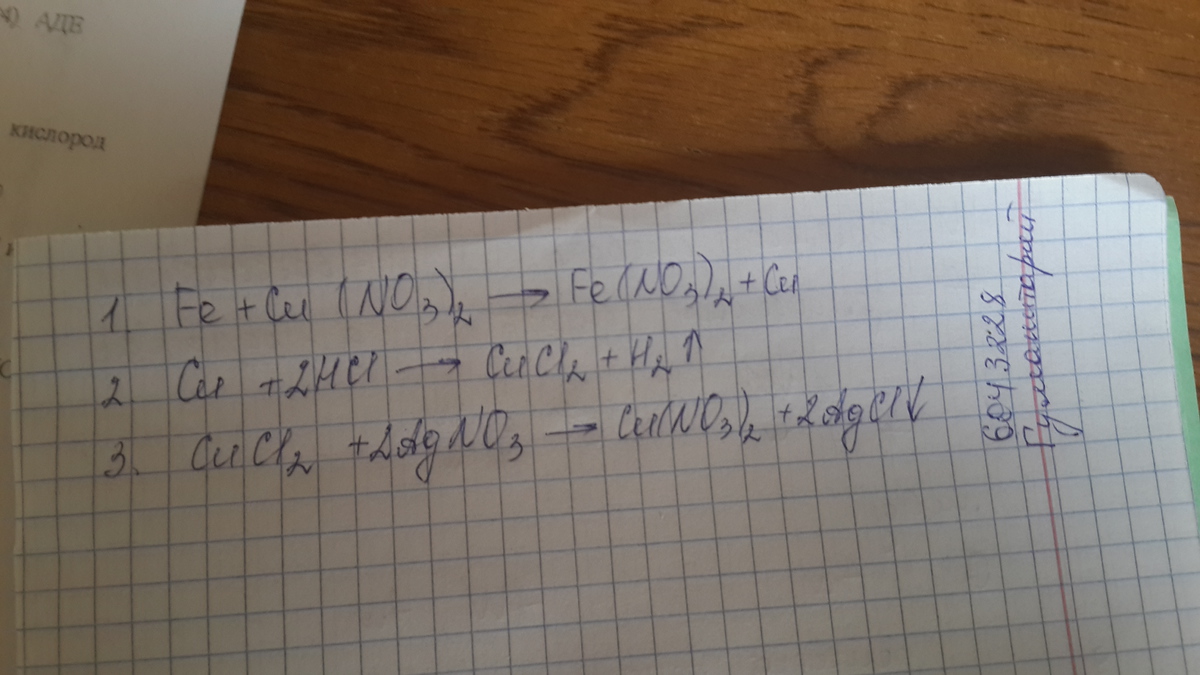 АДЕ
кислород
1. Fe + Cu (NO3)2 → Fe(NO3)2 + Cu
2. Cu + 2HCl → CuCl2 + H2↑
3. CuCl2 + 2AgNO3 → Cu(NO3)2 + 2AgCl↓